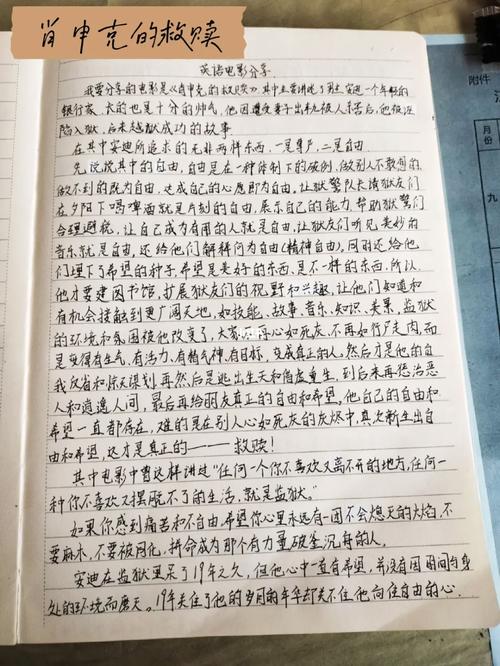 肖申克的救赎
英语电影分享
我要分享的电影是《肖申克的救赎》其中主要讲述了男主安迪一个年轻的
银行家,长的也是十分的帅气,他因遭受妻子出轨被人杀害后,他被诬
陷入狱,后来越狱成功的故事
在其中安迪所追求的无非两样东西,一是尊严,二是自由。
先说说其中的自由,自由是在一种体制下的破例,做别人不敢想的
做不到的既为自由,达成自己的心愿即为自由,让狱警队长请狱友们
在夕阳下喝啤酒就是片刻的自由,展示自己的能力,帮助狱警们
合理避税,让自己成为有用的人就是自由,让狱友们听见美妙的
音乐就是自由,还给他们解释何为自由(精神自由),同时还给他
们埋下了希望的种子,希望是美好的东西,是不一样的东西,所以
他才要建图书馆,扩展狱友们的视野和兴趣,让他们知道和
有机会接触到更广阔天地,如技能、故事、音乐、知识、美景,监狱
的环境和氛围被他改变了,大家不再心如死灰,不再如行尸走肉,而
是变得有生气,有活力,有精气神,有目标,变成真正的人,然后才是他的自
我反省和惊天谋划,再然后是逃出生天和借壳重生,到后来再惩治恶
人和逍遥人间,最后再给朋友真正的自由和希望。他自己的自由和
希望一直都存在,难的是在别人心如死灰的灰烬中,再次新生出自
由和希望,这才是真正的——救赎!
其中电影中曾这样讲过“任何一个你不喜欢又离不开的地方,任何一
种你不喜欢又摆脱不了的生活,就是监狱。”
如果你感到痛苦和不自由,希望你心里永远有一团不会熄灭的火焰,不
要麻木,不要被同化,拼命成为那个有力量破釜沉舟的人。
安迪在监狱里呆了19年之久,但他心中一直有希望,并没有因时间与身
处的环境而磨灭。19年关住了他的岁月的年华却关不住他向往自由的心。
附件
九